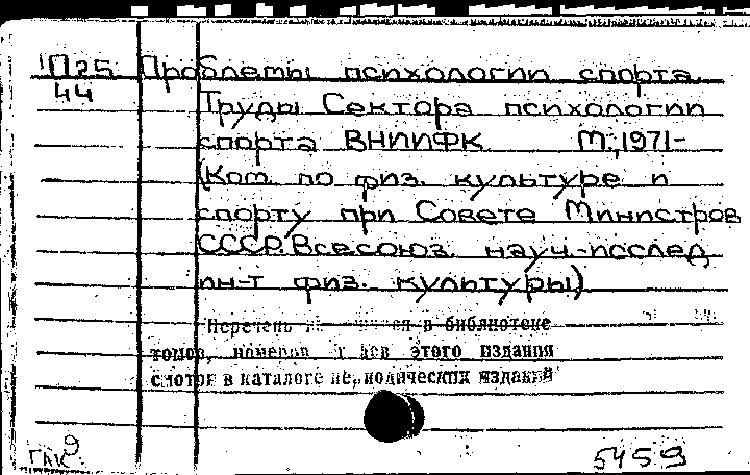 П25 Проблемы психологии спорта
44 Труды Сектора психологии
спорта ВНИИФК М., 1971-
(Ком. по физ. культуре и
спорту при Совете Министров
СССР. Всесоюз. науч.-исслед.
ин-т физ. культуры)
Перечень имеющихся в библиотеке
томов, номеров и лет этого издания
смотри в каталоге периодических изданий
ГАК 9.
5459